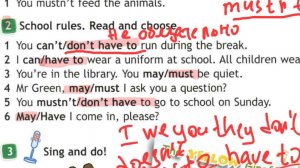 1 You mustn't feed the animals.
must
2 School rules. Read and choose.
не обязательно
1 You can't/don't have to run during the break.
2 I can/have to wear a uniform at school. All children wea
3 You're in the library. You may/must be quiet.
4 Mr Green, may/must I ask you a question?
5 You mustn't/don't have to go to school on Sunday.
6 May/Have I come in, please?
I we you they don't
have to
3 Sing and do!
doesn't